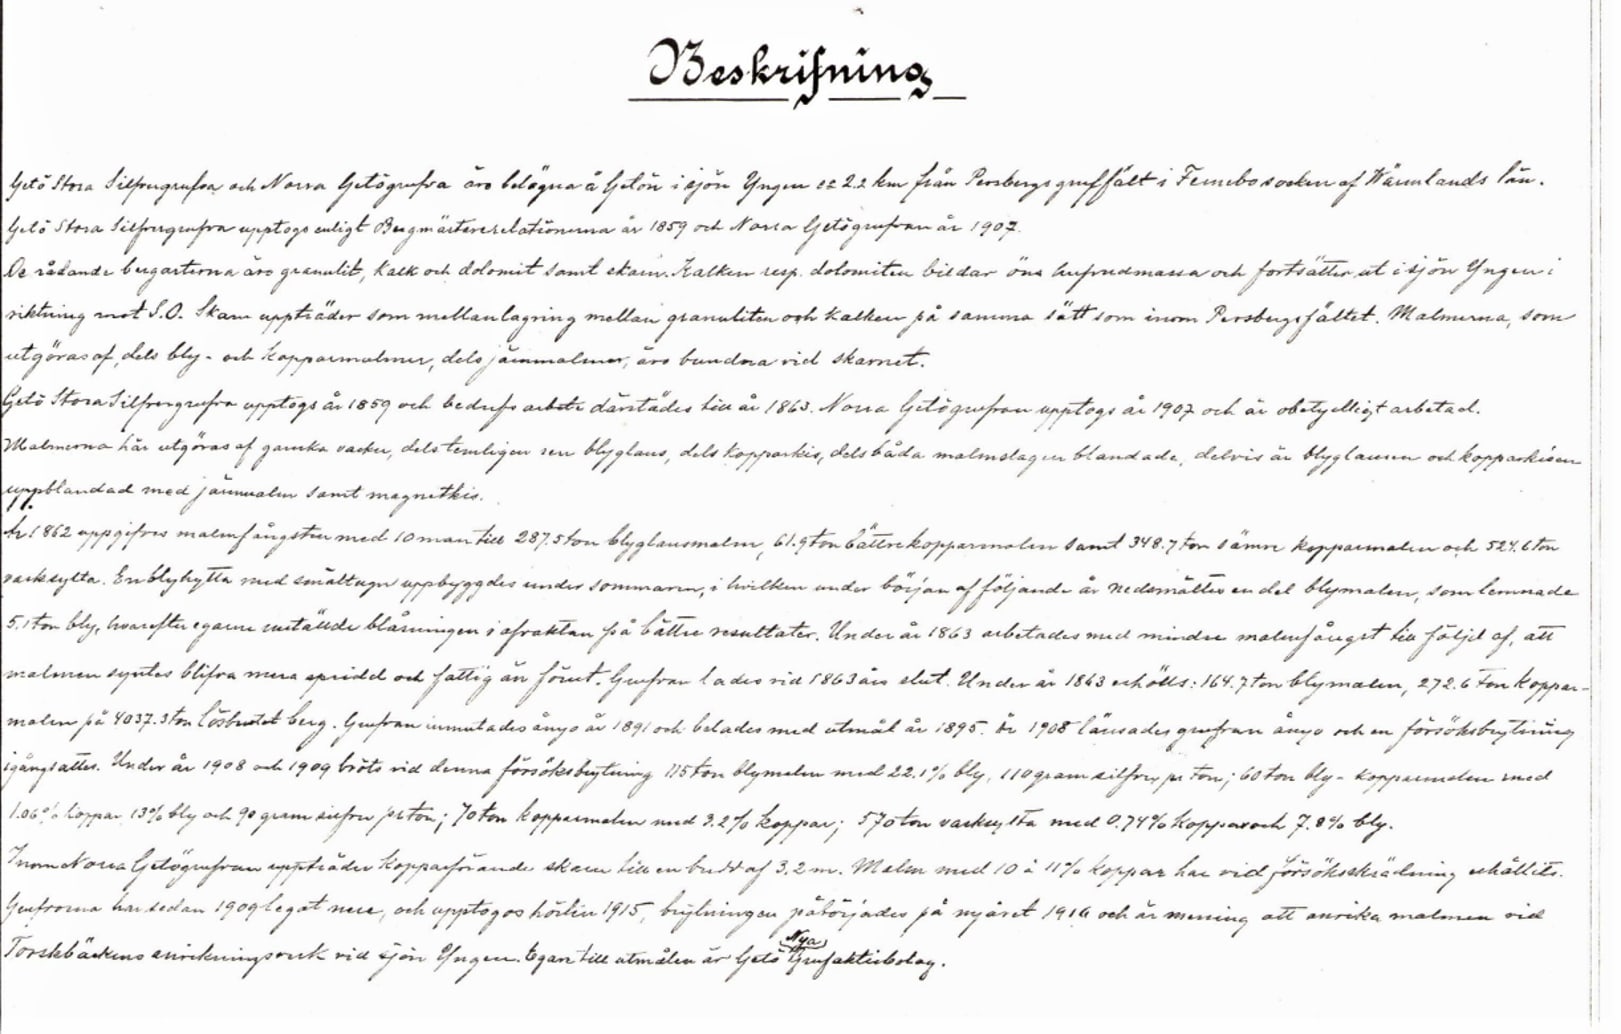 Beskrifning
Getö Stora Silfvergrufva och Norra Getögrufva äro belägna å Getön i sjön Yngen ca 2.2 km från Persbergs gruffält i Fernebo socken af Wärmlands län.
Getö Stora Silfvergrufva upptogs enligt Bergmästarerelationerna år 1859 och Norra Getögrufvan år 1907.
De rådande bergarterna äro granulit, kalk och dolomit samt skarn. Kalken resp. dolomiten bildar öns hufvudmassa och fortsätter ut i sjön Yngen i
riktning mot S.O. Skarn uppträder som mellanlagring mellan granuliten och kalken på samma sätt som inom Persbergsfältet. Malmerna, som
utgöras af, dels bly- och kopparmalmer, dels järnmalmer, äro bundna vid skarnet.
Getö Stora Silfvergrufva upptogs år 1859 och bedrefs arbete därstädes till år 1863. Norra Getögrufvan upptogs år 1907 och är obetydligt arbetad.
Malmerna här utgöras af ganska vacker, dels temligen ren blyglans, dels kopparkis, dels båda malmslagen blandade, delvis är blyglansen och kopparkisen
uppblandad med järnmalm samt magnetkis.
År 1862 uppgifves malmfångsten med 10 man till 287.5 ton blyglansmalm, 61.9 ton bättre kopparmalm samt 348.7 ton sämre kopparmalm och 524.6 ton
vasksylta. En blyhytta med smältugn uppbyggdes under sommaren, i hvilken under början af följande år nedsmältes en del blymalm, som lemnade
5.1 ton bly, hvarefter egarne inställde blåsningen i afvaktan på bättre resultater. Under år 1863 arbetades med mindre malmfångst till följd af, att
malmen syntes blifva mera spridd och fattig än förut. Grufvan lades vid 1863 års slut. Under år 1863 erhölls: 164.7 ton blymalm, 272.6 ton koppar-
malm på 4037.3 ton lösbrutet berg. Grufvan inmutades ånyo år 1891 och belades med utmål år 1895. År 1908 länsades grufvan ånyo och en försöksbrytning
igångsattes. Under år 1908 och 1909 bröts vid denna försöksbrytning 115 ton blymalm med 22.1% bly, 110 gram silfver pr ton; 60 ton bly- kopparmalm med
1.06% koppar, 13% bly och 90 gram silfver pr ton; 70 ton kopparmalm med 3.2% koppar; 570 ton vasksylta med 0.74% koppar och 7.8% bly.
Inom Norra Getögrufvan uppträder kopparförande skarn till en bredd af 3.2 m. Malm med 10 à 11% koppar har vid försöksskrädning erhållits.
Grufvorna har sedan 1909 legat nere, och upptogos hösten 1915, brytningen påbörjades på nyåret 1916 och är mening att anrika malmen vid
Torskbäckens anrikningsverk vid sjön Yngen. Egare till utmålen är Getö Nya Grufaktiebolag.